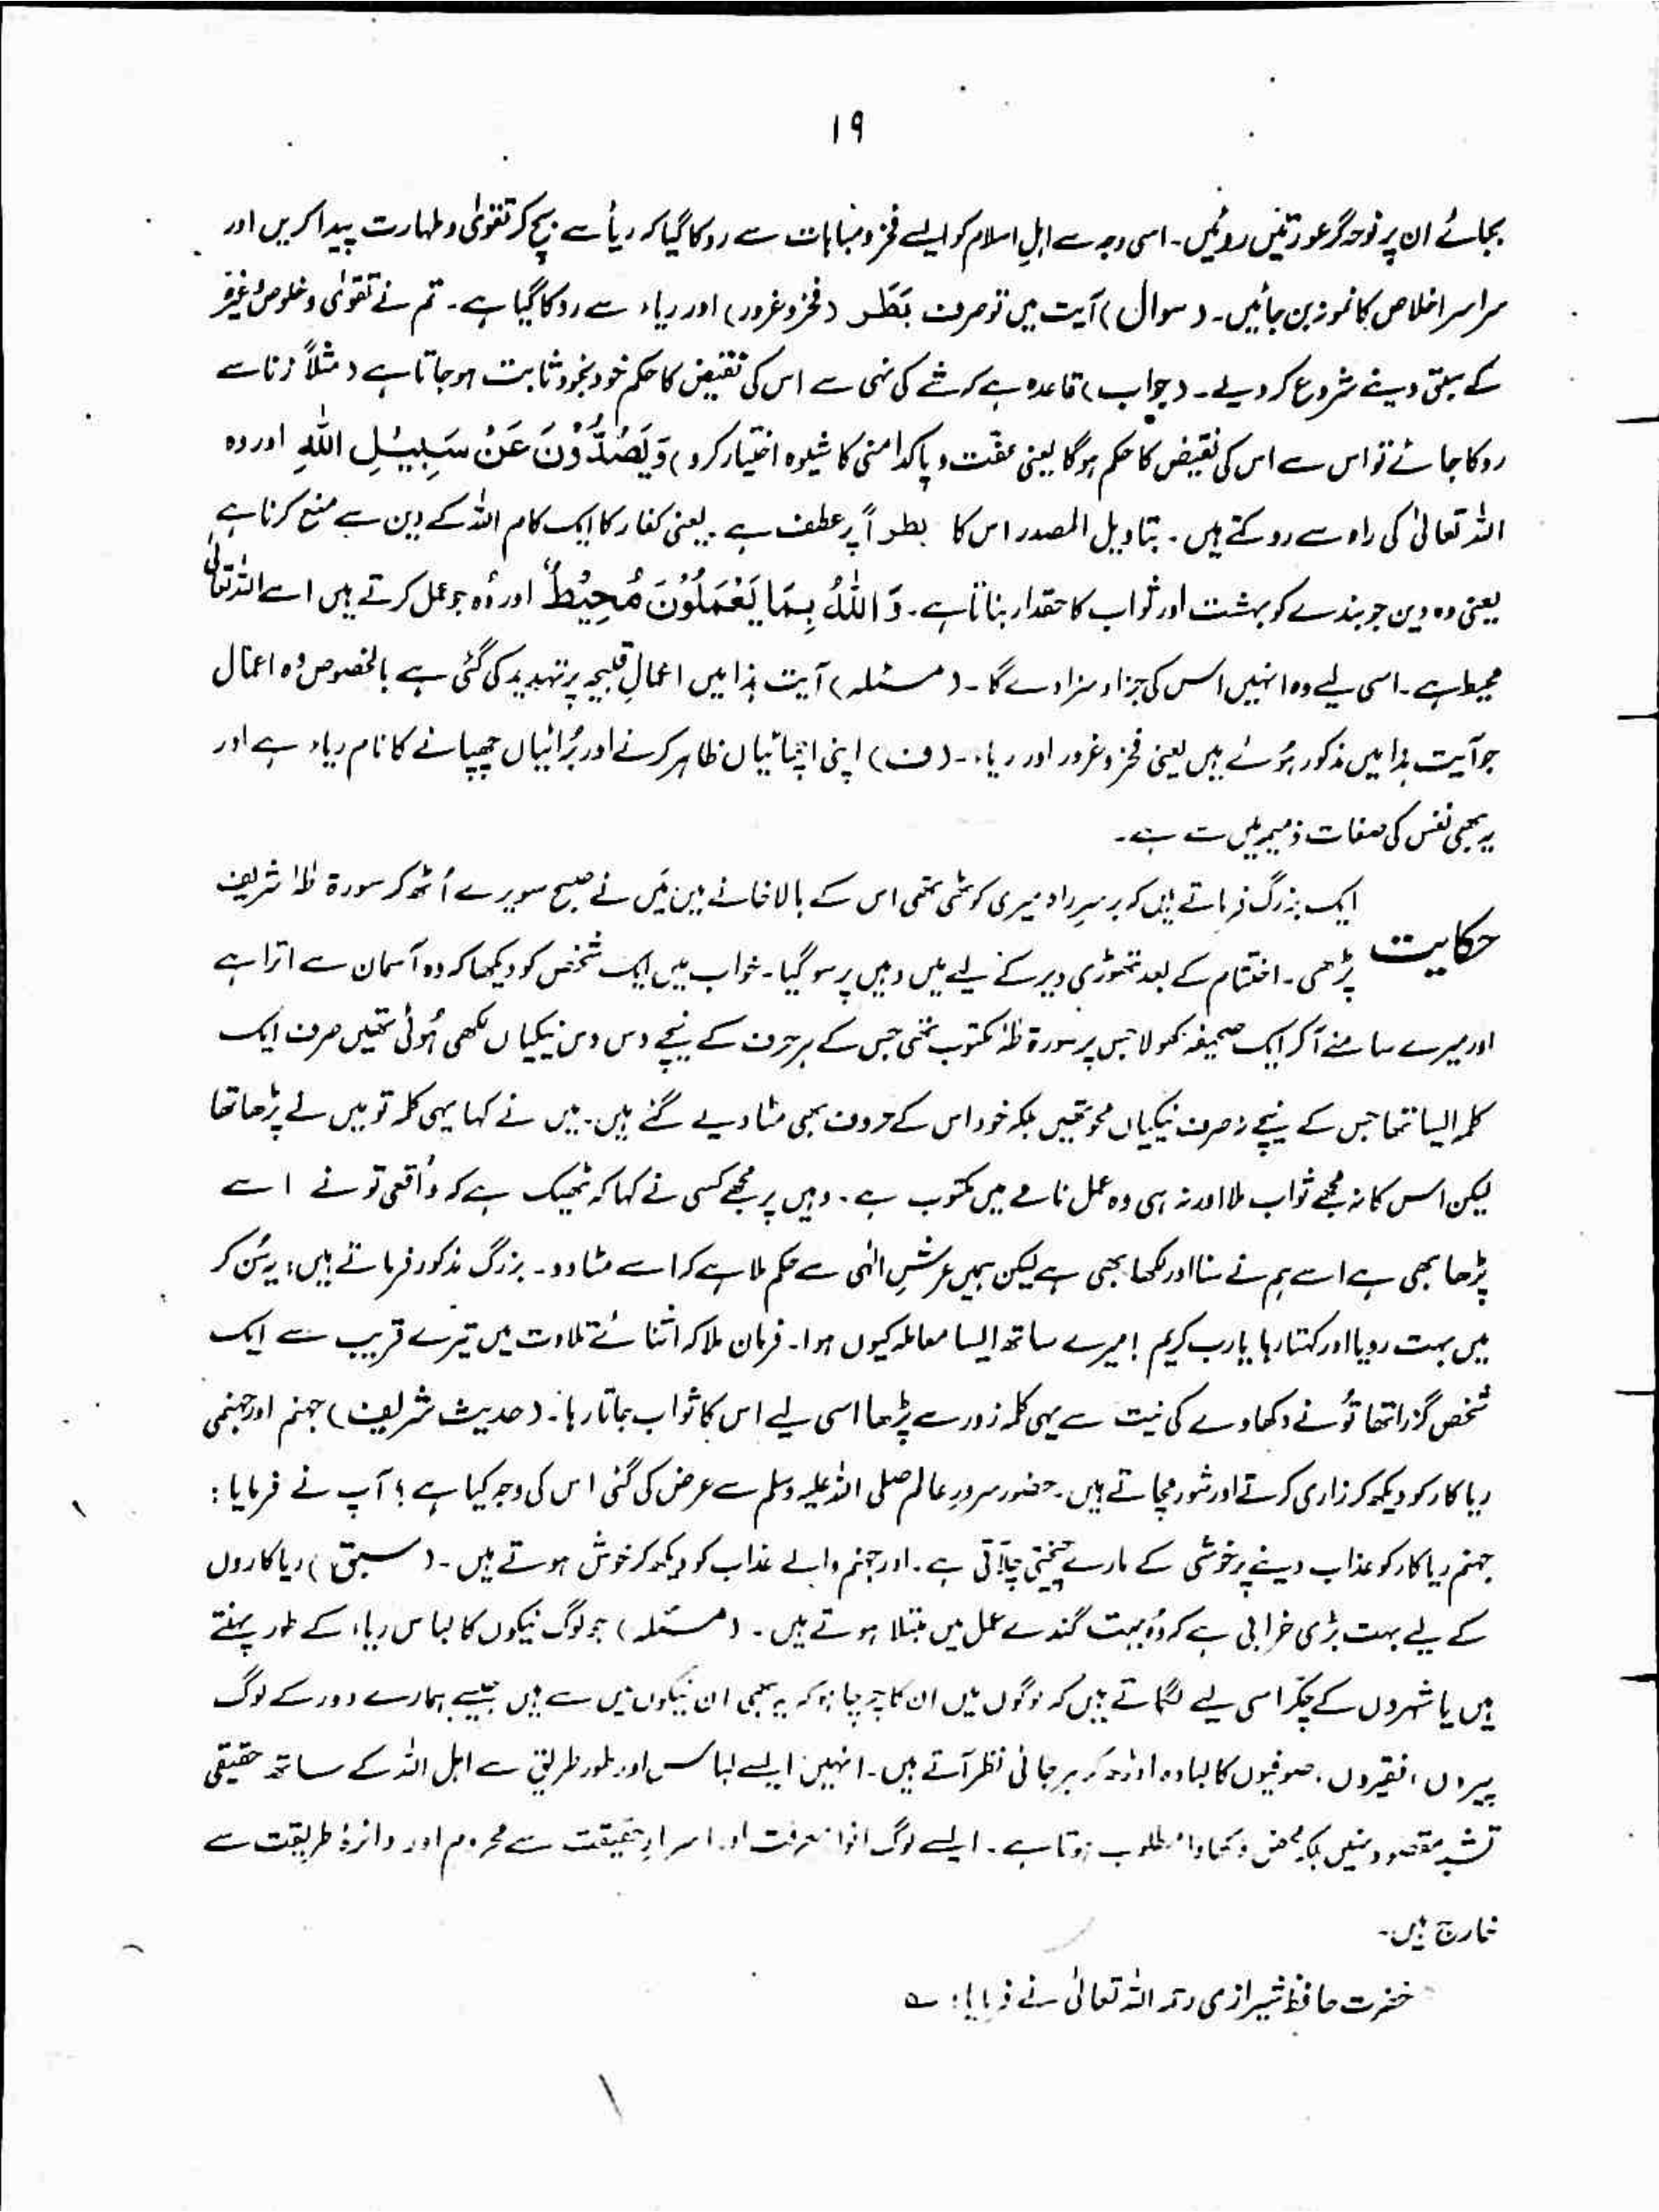 ۱۹
بجائے ان پر نوحہ گر عورتیں روئیں۔ اسی وجہ سے اہلِ اسلام کو ایسے فخر و مباہات سے روکا گیا کہ ریأ سے بچ کر تقوٰی و طہارت پیدا کریں اور
سراسر اخلاص کا نمونہ بن جائیں۔ (سوال) آیت میں تو صرف بَطَر (فخر و غرور) اور ریاء سے روکا گیا ہے۔ تم نے تقوٰی و خلوص وغیرہ
کے سبق دینے شروع کر دیے۔ (جواب) قاعدہ ہے کہ شے کی نہی سے اس کی نقیض کا حکم خود بخود ثابت ہو جاتا ہے (مثلاً زنا سے
روکا جائے تو اس سے اس کی نقیض کا حکم ہوگا یعنی عفت و پاکدامنی کا شیوہ اختیار کرو) وَيَصُدُّوْنَ عَنْ سَبِيْلِ اللّٰهِ اور وہ
اللہ تعالیٰ کی راہ سے روکتے ہیں۔ بتاویل المصدر اس کا بطراً پر عطف ہے۔ یعنی کفار کا ایک کام اللہ کے دین سے منع کرنا ہے
یعنی وہ دین جو بندے کو بہشت اور ثواب کا حقدار بناتا ہے۔ وَاللّٰهُ بِمَا يَعْمَلُوْنَ مُحِيْطٌ اور وُہ جو عمل کرتے ہیں اسے اللہ تعالٰی
محیط ہے۔ اسی لیے وہ انہیں اس کی جزاء و سزا دے گا۔ (مسئلہ) آیت ہذا میں اعمالِ قبیحہ پر تہدید کی گئی ہے بالخصوص وہ اعمال
جو آیت ہذا میں مذکور ہُوئے ہیں یعنی فخر و غرور اور ریاء۔ (ف) اپنی اچھائیاں ظاہر کرنے اور بُرائیاں چھپانے کا نام ریاء ہے اور
یہ بھی نفس کی صفات ذمیمہ میں سے ہے۔
حکایت ایک بزرگ فرماتے ہیں کہ برسرِ راہ میری کوٹھی تھی اس کے بالاخانے میں مَیں نے صبح سویرے اُٹھ کر سورۃ طٰہٰ شریف
پڑھی۔ اختتام کے بعد تھوڑی دیر کے لیے میں وہیں پر سو گیا۔ خواب میں ایک شخص کو دیکھا کہ وہ آسمان سے اترا ہے
اور میرے سامنے آ کر ایک صحیفہ کھولا جس پر سورۃ طٰہٰ مکتوب تھی جس کے ہر حرف کے نیچے دس دس نیکیاں لکھی ہُوئی تھیں صرف ایک
کلمہ ایسا تھا جس کے نیچے نہ صرف نیکیاں محو تھیں بلکہ خود اس کے حروف بھی مٹا دیے گئے ہیں۔ میں نے کہا یہی کلمہ تو میں نے پڑھا تھا
لیکن اس کا نہ مجھے ثواب ملا اور نہ ہی وہ عمل نامے میں مکتوب ہے۔ وہیں پر مجھے کسی نے کہا کہ ٹھیک ہے کہ واقعی تو نے اسے
پڑھا بھی ہے اسے ہم نے سنا اور لکھا بھی ہے لیکن ہمیں عرشِ الٰہی سے حکم ملا ہے کہ اسے مٹا دو۔ بزرگ مذکور فرماتے ہیں: یہ سُن کر
میں بہت رویا اور کہتا رہا یا رب کریم! میرے ساتھ ایسا معاملہ کیوں ہوا۔ فرمان ملا کہ اثنائے تلاوت میں تیرے قریب سے ایک
شخص گزرا تھا تُو نے دکھاوے کی نیت سے یہی کلمہ زور سے پڑھا اسی لیے اس کا ثواب جاتا رہا۔ (حدیث شریف) جہنم اور جہنمی
ریاکار کو دیکھ کر زاری کرتے اور شور مچاتے ہیں۔ حضور سرورِ عالم صلی اللہ علیہ وسلم سے عرض کی گئی اس کی وجہ کیا ہے؟ آپ نے فرمایا:
جہنم ریاکار کو عذاب دینے پر خوشی کے مارے چیختی چلّاتی ہے۔ اور جہنم والے عذاب کو دیکھ کر خوش ہوتے ہیں۔ (سبق) ریاکاروں
کے لیے بہت بڑی خرابی ہے کہ وُہ بہت گندے عمل میں مبتلا ہوتے ہیں۔ (مسئلہ) جو لوگ نیکوں کا لباس ریاء کے طور پہنتے
ہیں یا شہروں کے چکر اسی لیے لگاتے ہیں کہ لوگوں میں ان کا چرچا ہو کہ یہ بھی ان نیکوں میں سے ہیں جیسے ہمارے دور کے لوگ
پیروں، فقیروں، صوفیوں کا لبادہ اوڑھ کر ہرجائی نظر آتے ہیں۔ انہیں ایسے لباس اور طور طریق سے اہل اللہ کے ساتھ حقیقی
تشبہ مقصود نہیں بلکہ محض دکھاوا مطلوب ہوتا ہے۔ ایسے لوگ انوارِ معرفت اور اسرارِ حقیقت سے محروم اور دائرۂ طریقت سے
خارج ہیں۔
حضرت حافظ شیرازی رحمہ اللہ تعالیٰ نے فرمایا: ؎